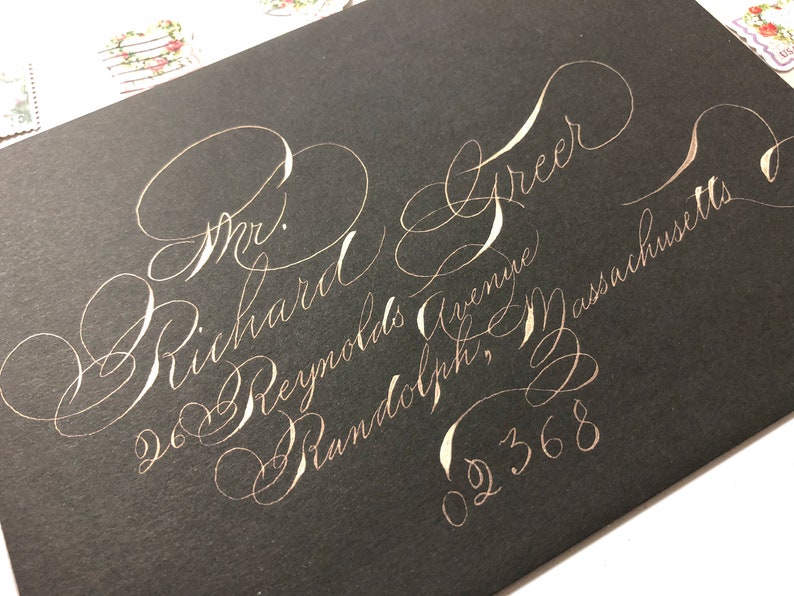 Mr.
Richard Greer
26 Reynolds Avenue
Randolph, Massachusetts
02368
US